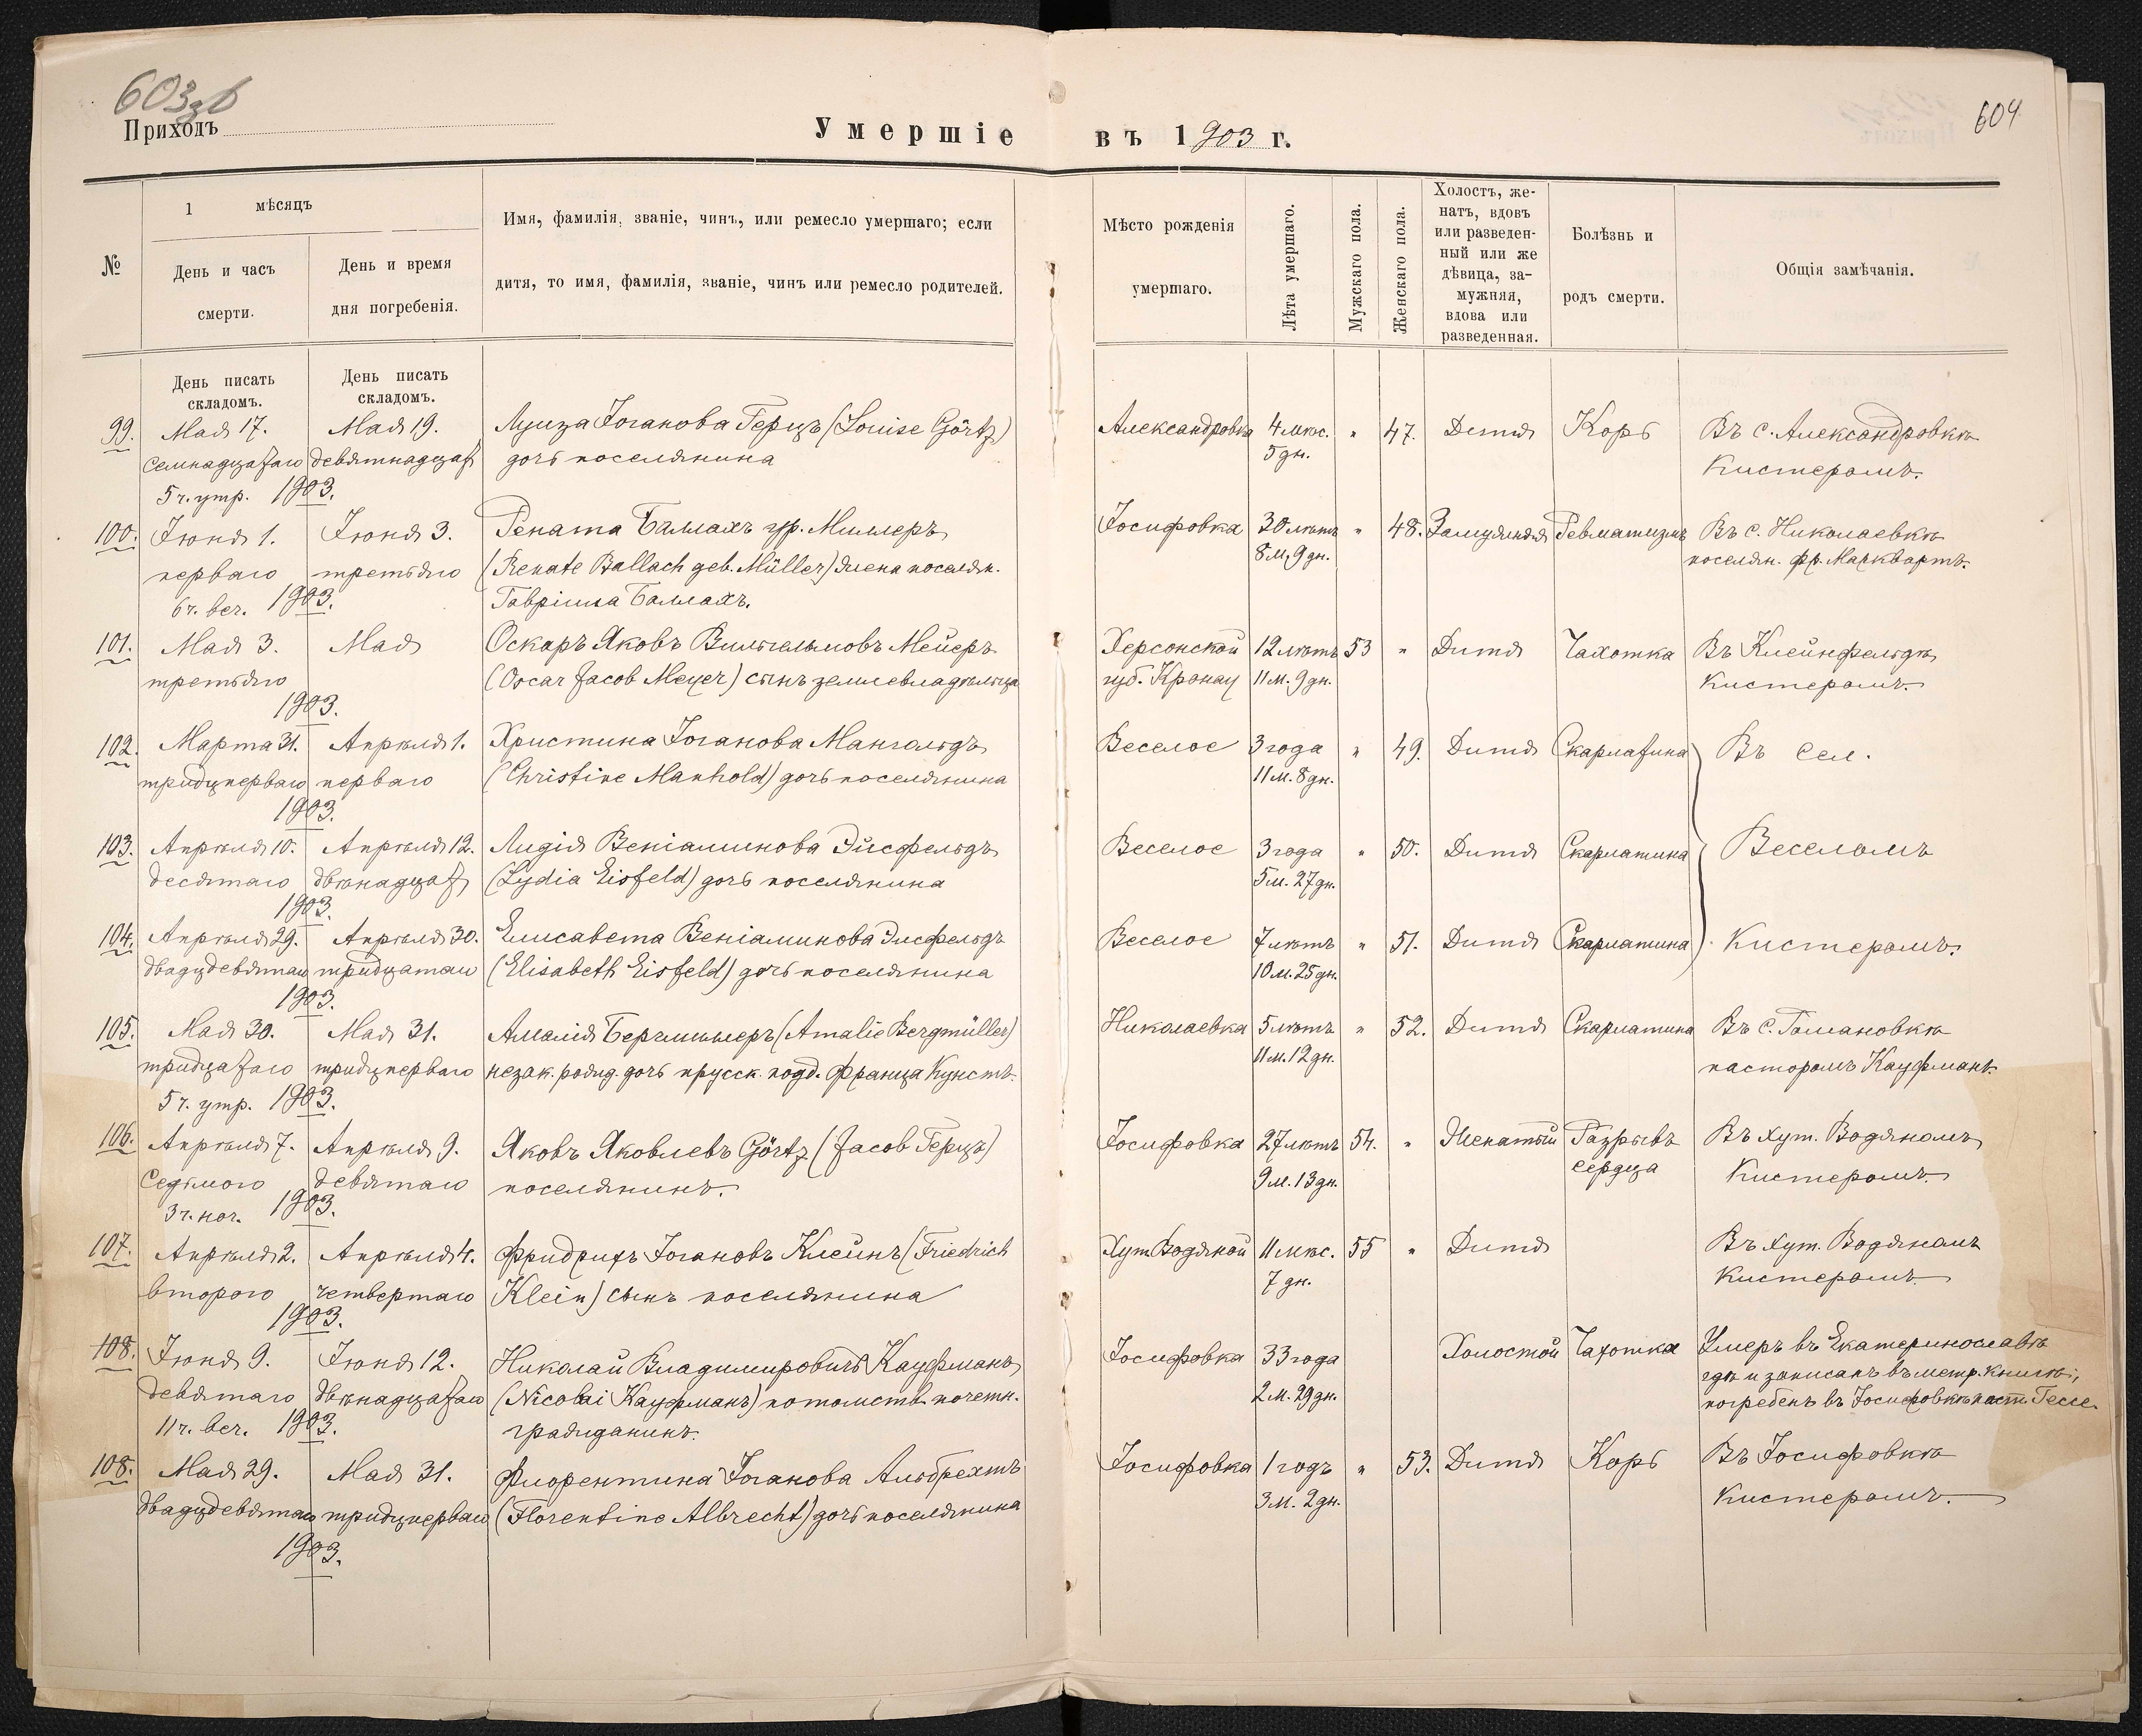 603зб
604
Приходъ
Умершіе въ 1903 г.
№
1 мѣсяцъ
День и часъ
смерти.
День и время
дня погребенія.
Имя, фамилія, званіе, чинъ, или ремесло умершаго; если
дитя, то имя, фамилія, званіе, чинъ или ремесло родителей.
Мѣсто рожденія
умершаго.
Лѣта умершаго.
Мужскаго пола.
Женскаго пола.
Холостъ, же-
натъ, вдовъ
или разведен-
ный или же
дѣвица, за-
мужняя,
вдова или
разведенная.
Болѣзнь и
родъ смерти.
Общія замѣчанія.
День писать
складомъ.
День писать
складомъ.
99. Мая 17. Мая 19. Луиза Іоганова Герцъ (Louise Görtz) Александровка 4 мѣс. " 47. Дитя Корь Въ с. Александровкѣ
семнадцатаго девятнадцат дочь поселянина 5 дн. Кистеромъ.
5 ч. утр. 1903.
100. Іюня 1. Іюня 3. Рената Баллахъ ур. Миллеръ Іосифовка 30 лѣтъ " 48. Замужняя Ревматизмъ Въ с. Николаевкѣ
перваго третьяго (Renate Ballach geb. Müller) жена поселян. 8 м. 9 дн. поселян. Фр. Марквартъ.
6 ч. веч. 1903. Гавріила Баллахъ.
101. Мая 3. Мая Оскаръ Яковъ Вильгельмовъ Мейеръ Херсонской 12 лѣтъ 53 " Дитя Чахотка Въ Клейнфельдѣ
третьяго (Oscar Jacob Meyer) сынъ землевладѣльца губ. Кронау 11 м. 9 дн. Кистеромъ.
1903.
102. Марта 31. Апрѣля 1. Христина Іоганова Мангольдъ Веселое 3 года " 49. Дитя Скарлатина Въ сел.
тридцперваго перваго (Christine Manhold) дочь поселянина 11 м. 8 дн.
1903.
103. Апрѣля 10. Апрѣля 12. Лидія Веніаминова Эйсфельдъ Веселое 3 года " 50. Дитя Скарлатина Веселомъ
десятаго двѣнадцат (Lydia Eisfeld) дочь поселянина 5 м. 27 дн.
1903.
104. Апрѣля 29. Апрѣля 30. Елисавета Веніаминова Эйсфельдъ Веселое 7 лѣтъ " 51. Дитя Скарлатина Кистеромъ.
двадцдевятаго тридцатаго (Elisabeth Eisfeld) дочь поселянина 10 м. 25 дн.
1903.
105. Мая 30. Мая 31. Амалія Бергмиллеръ (Amalie Bergmüller) Николаевка 5 лѣтъ " 52. Дитя Скарлатина Въ с. Романовкѣ
тридцатаго тридцперваго незак. рожд. дочь прусск. подд. Франца Кунстъ. 11 м. 12 дн. пасторомъ Кауфманъ.
5 ч. утр. 1903.
106. Апрѣля 7. Апрѣля 9. Яковъ Яковлевъ Görtz (Jacob Герцъ) Іосифовка 27 лѣтъ 54. " Женатый Разрывъ Въ хут. Водяномъ
седьмого девятаго поселянинъ. 9 м. 13 дн. сердца Кистеромъ.
3 ч. ноч. 1903.
107. Апрѣля 2. Апрѣля 4. Фридрихъ Іогановъ Клейнъ (Friedrich Хут. Водяной 11 мѣс. 55 " Дитя Въ хут. Водяномъ
второго четвертаго Klein) сынъ поселянина 7 дн. Кистеромъ.
1903.
108. Іюня 9. Іюня 12. Николай Владимировичъ Кауфманъ Іосифовка 33 года Холостой Чахотка Умеръ въ Екатеринославѣ
девятаго двѣнадцатаго (Nicolai Кауфманъ) потомств. почетн. 2 м. 29 дн. гдѣ и записанъ въ метр. книгѣ;
11 ч. веч. 1903. гражданинъ. погребенъ въ Іосифовкѣ паст. Гессе.
108. Мая 29. Мая 31. Флорентина Іоганова Альбрехтъ Іосифовка 1 годъ " 53. Дитя Корь Въ Іосифовкѣ
двадцдевятаго тридцперваго (Florentine Albrecht) дочь поселянина 3 м. 2 дн. Кистеромъ.
1903.